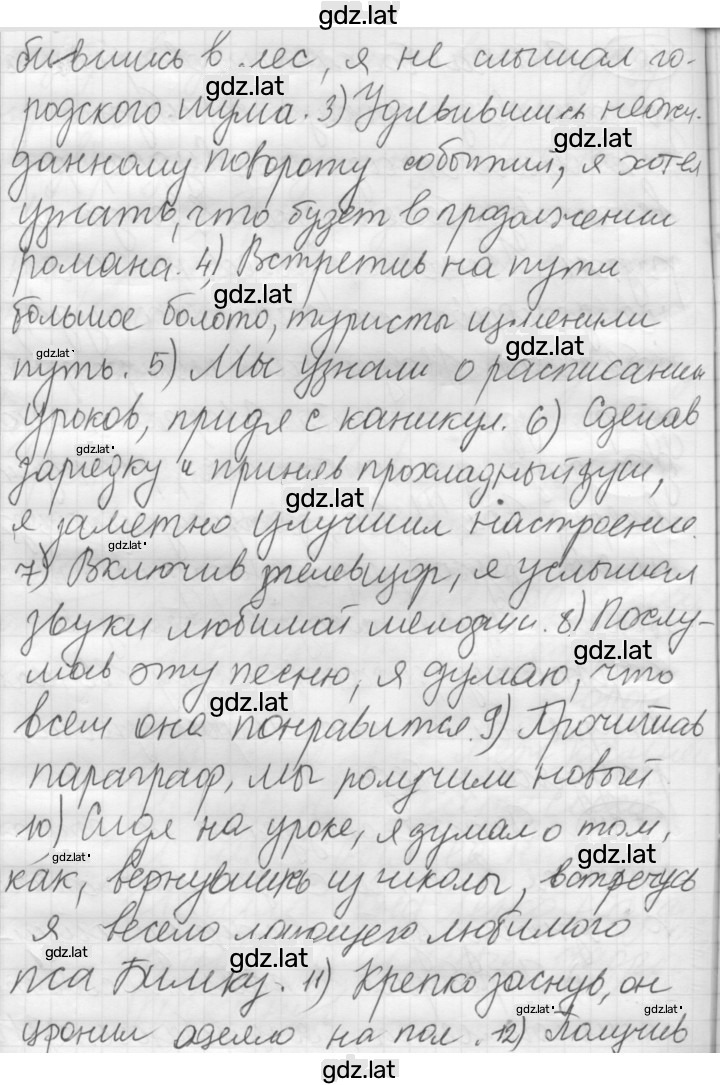 gdz.lat
бившись в лес, я не слышал го-
gdz.lat
родского шума. 3) Удивившись неожи-
gdz.lat
данному повороту событий, я хотел
узнать, что будет в продолжении
романа. 4) Встретив на пути
gdz.lat
большое болото, туристы изменили
gdz.lat gdz.lat
путь. 5) Мы узнали о расписании
уроков, придя с каникул. 6) Сделав
gdz.lat
зарядку и приняв прохладный душ,
gdz.lat
я заметно улучшил настроение.
gdz.lat
7) Включив телевизор, я услышал
звуки любимой мелодии. 8) Послу-
gdz.lat
шав эту песню, я думаю, что
gdz.lat
всем она понравится. 9) Прочитав
параграф, мы получили новый
10) Сидя на уроке, я думал о том,
gdz.lat gdz.lat
как, вернувшись из школы, встречусь
я весело лающего любимого
gdz.lat gdz.lat
пса Бимку. 11) Крепко заснув, он
gdz.lat gdz.lat
уронил одеяло на пол. 12) Получив
gdz.lat